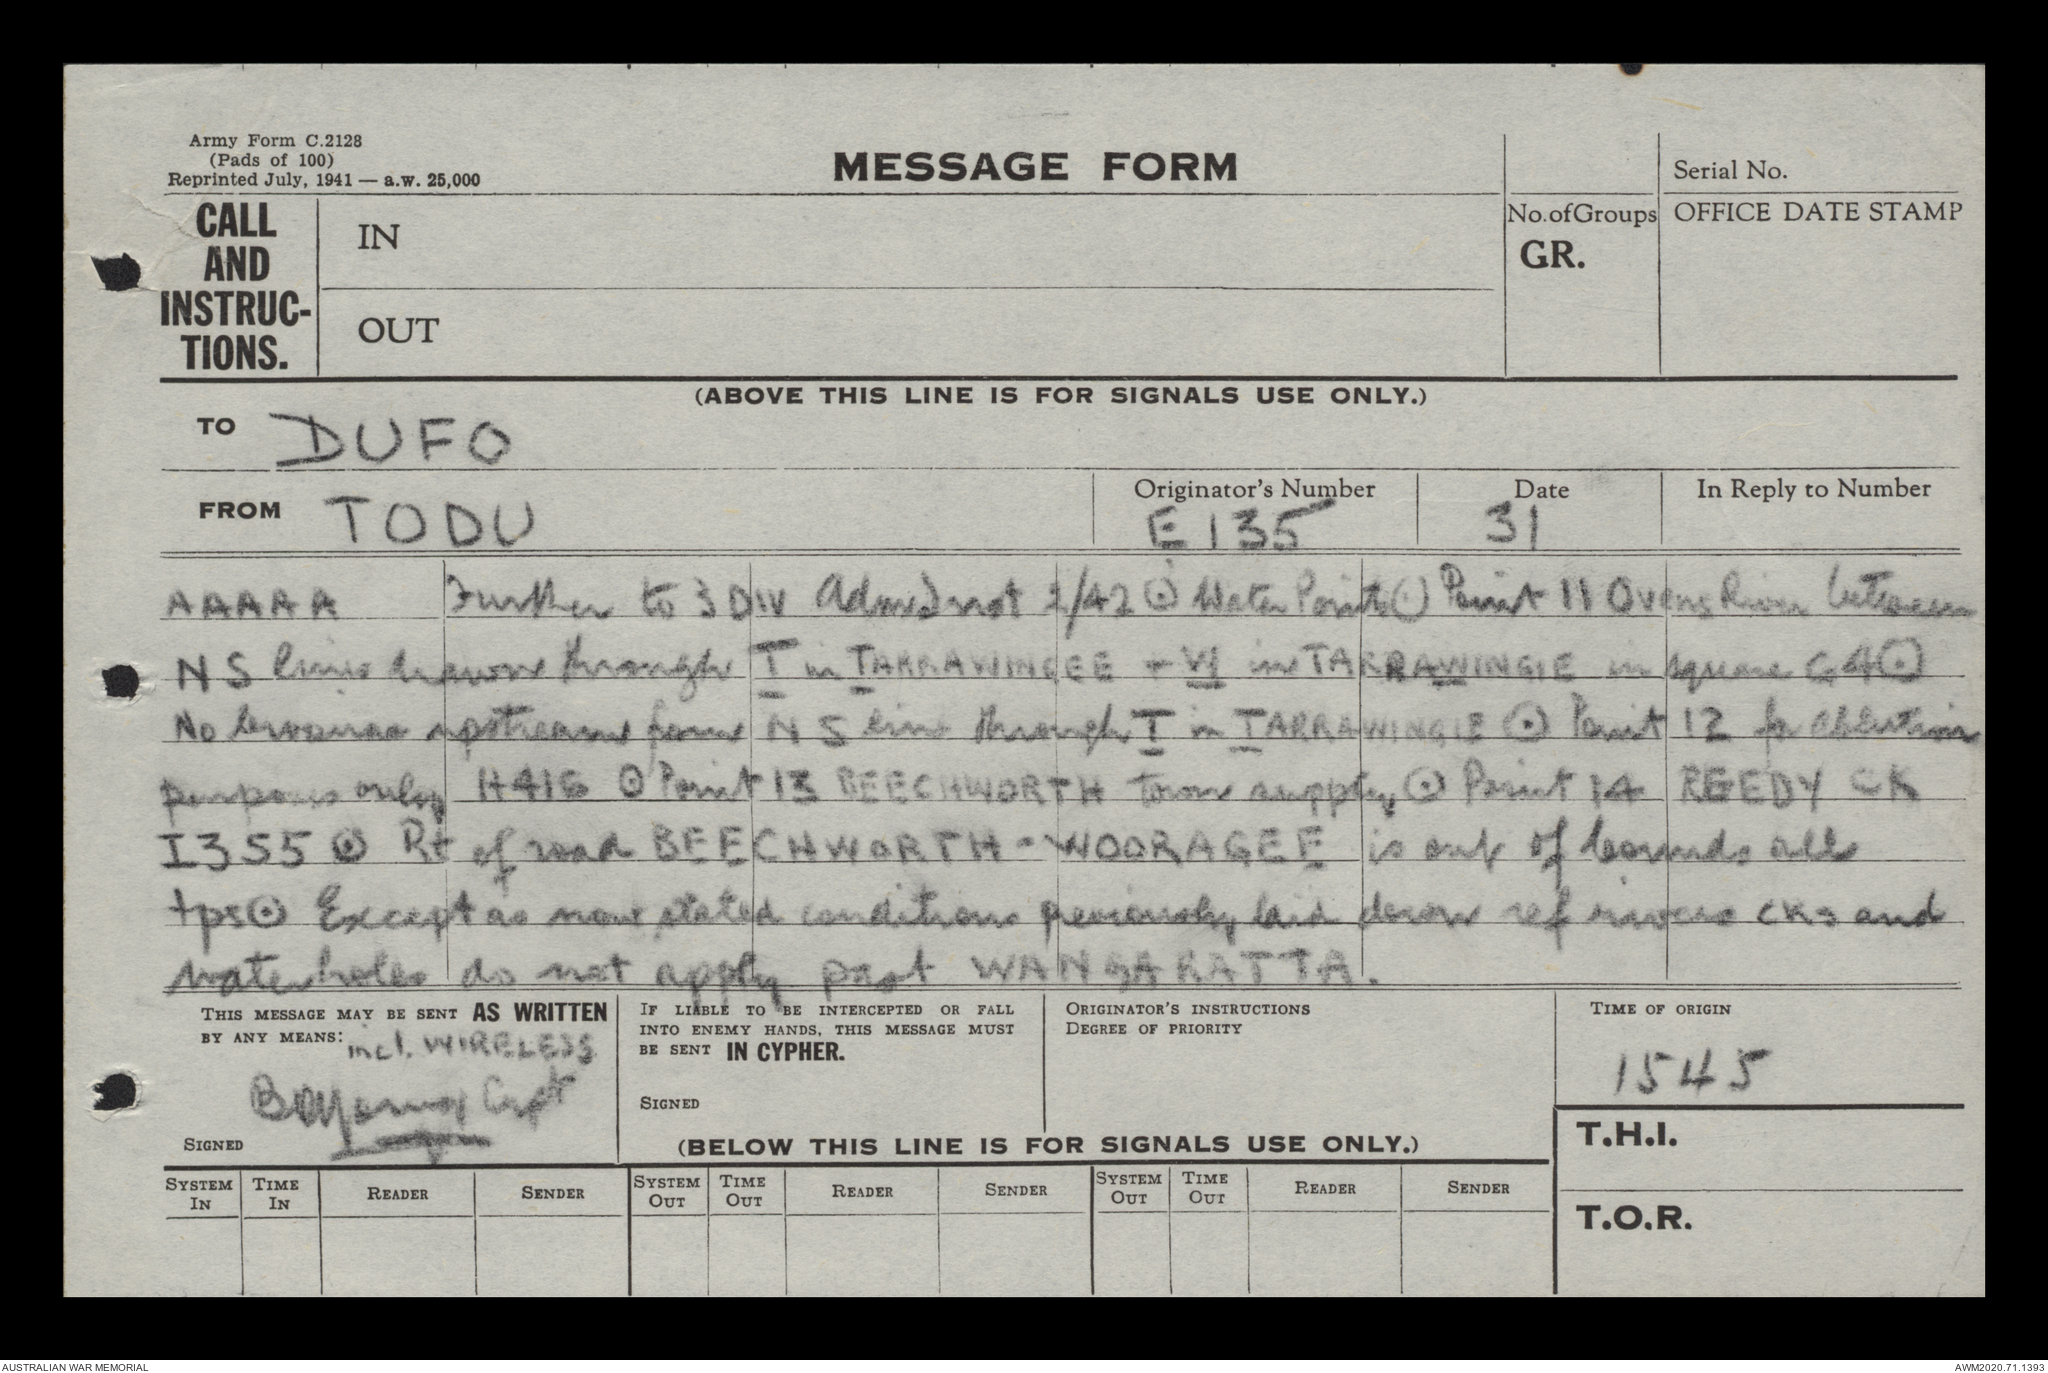 Army Form C.2128
(Pads of 100)
Reprinted July, 1941 — a.w. 25,000
MESSAGE FORM
Serial No.
CALL
AND
INSTRUC-
TIONS.
IN
OUT
No. of Groups
GR.
OFFICE DATE STAMP
(ABOVE THIS LINE IS FOR SIGNALS USE ONLY.)
TO DUFO
FROM TODU
Originator's Number
E135
Date
31
In Reply to Number
AAAAA Further to 3 DIV 2/42 ⊙ Water Points ⊙ Point 11 Ovens River between
N S lines drawn through T in TARRAWINGEE + W in TARRAWINGIE in square G4 ⊙
No upstream from N S line through T in TARRAWINGIE ⊙ Point 12 for ablution
purposes only H416 ⊙ Point 13 BEECHWORTH town supply ⊙ Point 14 REEDY CK
I355 ⊙ Rt of road BEECHWORTH - WOORAGEE is out of bounds all
tps ⊙ Except as now stated conditions previously laid down ref rivers cks and
waterholes do not apply past WANGARATTA.
THIS MESSAGE MAY BE SENT AS WRITTEN
BY ANY MEANS:
incl. WIRELESS
Capt
SIGNED
IF LIABLE TO BE INTERCEPTED OR FALL
INTO ENEMY HANDS, THIS MESSAGE MUST
BE SENT IN CYPHER.
SIGNED
ORIGINATOR'S INSTRUCTIONS
DEGREE OF PRIORITY
TIME OF ORIGIN
1545
(BELOW THIS LINE IS FOR SIGNALS USE ONLY.)
T.H.I.
T.O.R.
SYSTEM IN TIME IN READER SENDER SYSTEM OUT TIME OUT READER SENDER SYSTEM OUT TIME OUT READER SENDER
AUSTRALIAN WAR MEMORIAL
AWM2020.71.1393